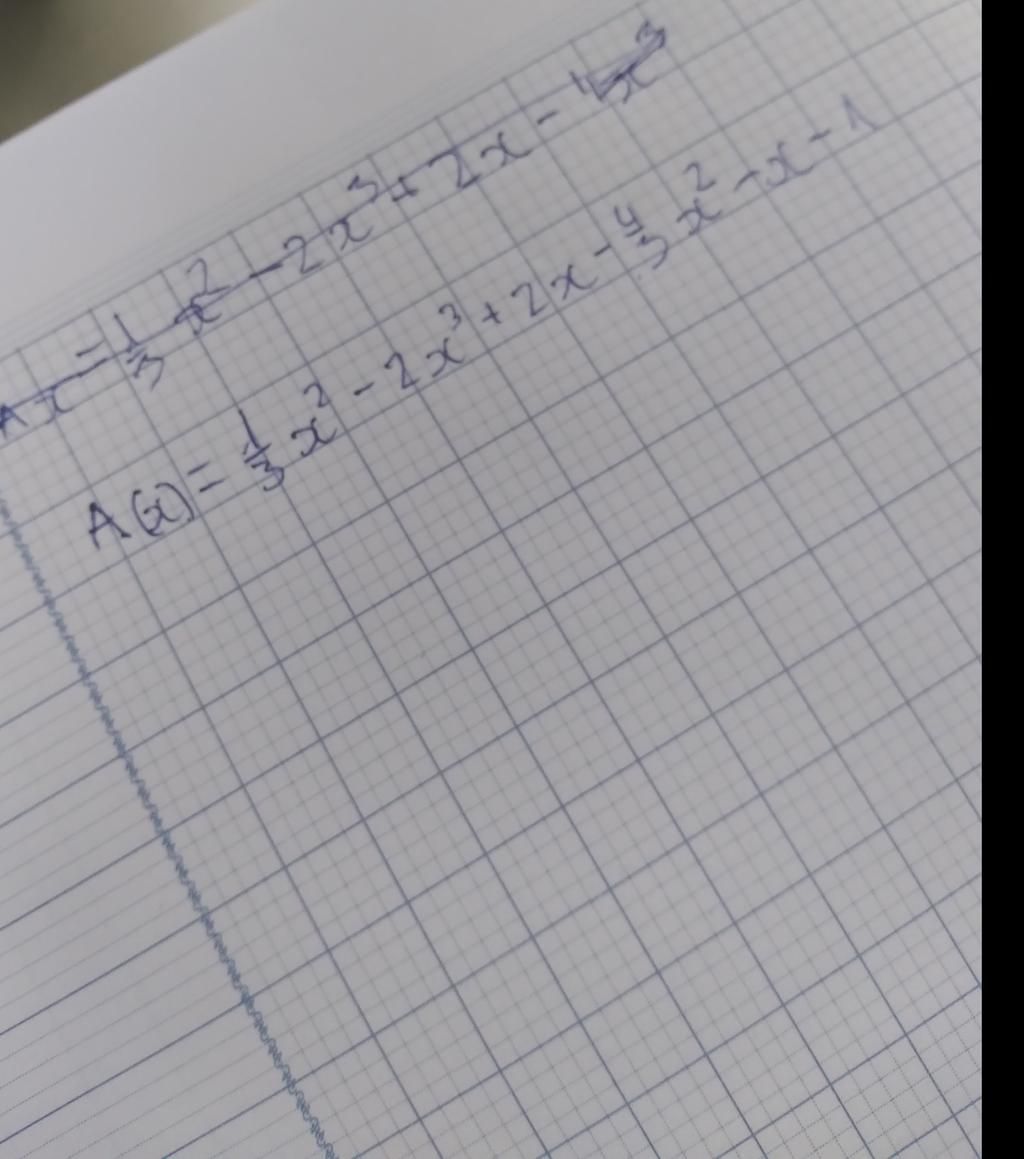 Ax = 1/3 x² - 2x³ + 2x -
A(x) = 1/3 x² - 2x³ + 2x - 4/3 x² - x - 1